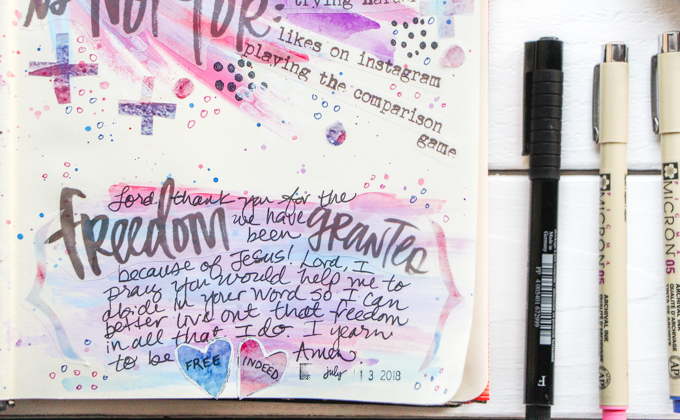 is NOT FOR:
trying harder
likes on instagram
playing the comparison
game
Lord thank you for the
freedom we have been granted
because of Jesus! Lord, I
pray you would help me to
abide in your word so I can
better live out that freedom
in all that I do. I yearn
to be FREE INDEED Amen.
july 13 2018
Made in
Germany
PIGMA
MICRON 05
ARCHIVAL INK
QUALITÉ D'ARCHIVAGE
PIGMA
MICRON 05
ARCHIVAL INK
QUALITÉ D'ARCHIVAGE